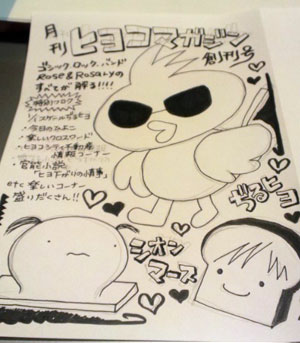 月刊 ヒヨコマガジン
創刊号
ゴシック ロック バンド
Rose&Rosaryの
すべてが 解る!!!!
特別フロク
・今日のひよこ
・楽しいクロスワード
・ヒヨコシティ不動産
情報コーナー
・官能小説
"ヒヨ下がりの情事"
etc 楽しいコーナー
盛りだくさん!!
ぢるヒヨ
シオン
マーズ